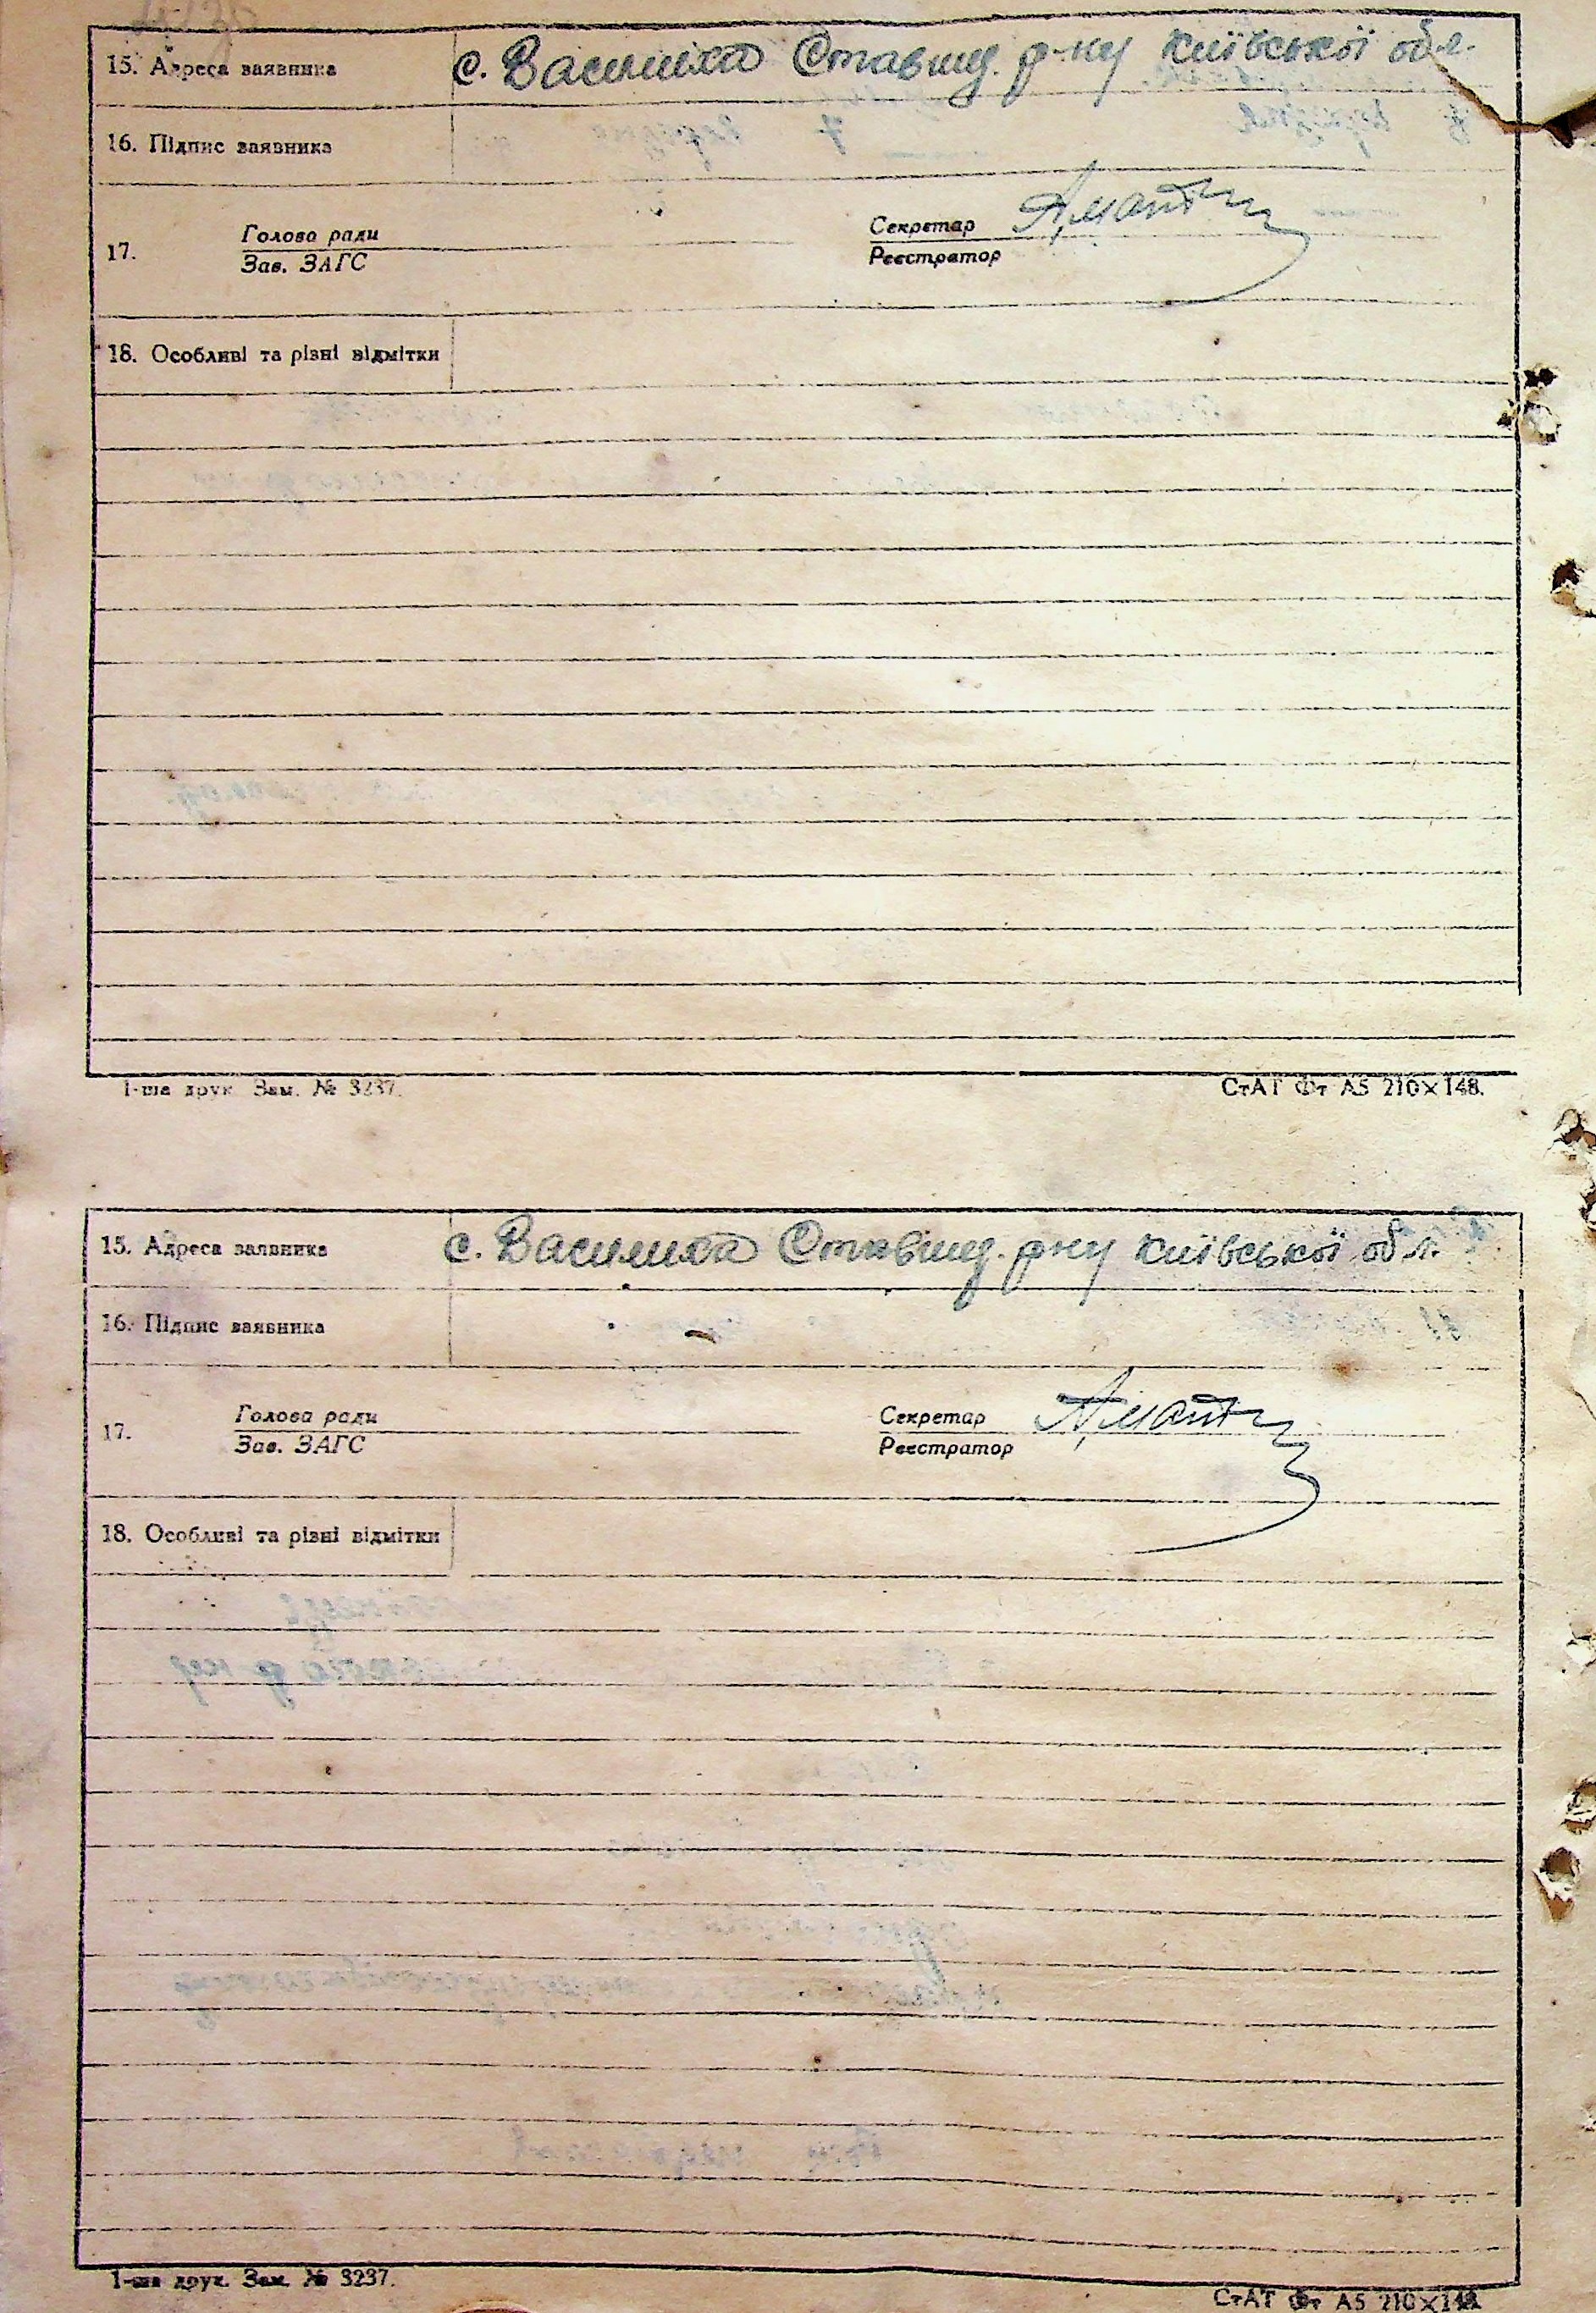 15. Адреса заявника с. Василиха Ставищ. р-ну Київської обл.
16. Підпис заявника
17. Голова ради Секретар
Зав. ЗАГС Реєстратор
18. Особливі та різні відмітки
1-ша друк. Зам. № 3237. СтАТ Фт А5 210×148.
15. Адреса заявника с. Василиха Ставищ. р-ну Київської обл.
16. Підпис заявника
17. Голова ради Секретар
Зав. ЗАГС Реєстратор
18. Особливі та різні відмітки
1-ша друк. Зам. № 3237. СтАТ Фт А5 210×148.